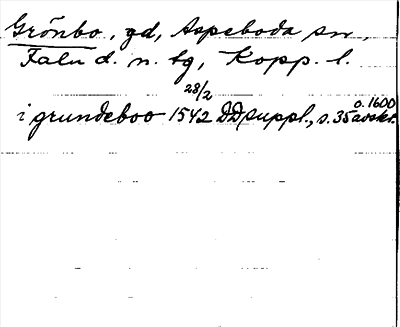 Grönbo, gd, Aspeboda sn,
Falu d. n. tg, Kopp. l.
i grundeboo 1542 28/2 DD suppl., s. 35 avskr. o. 1600